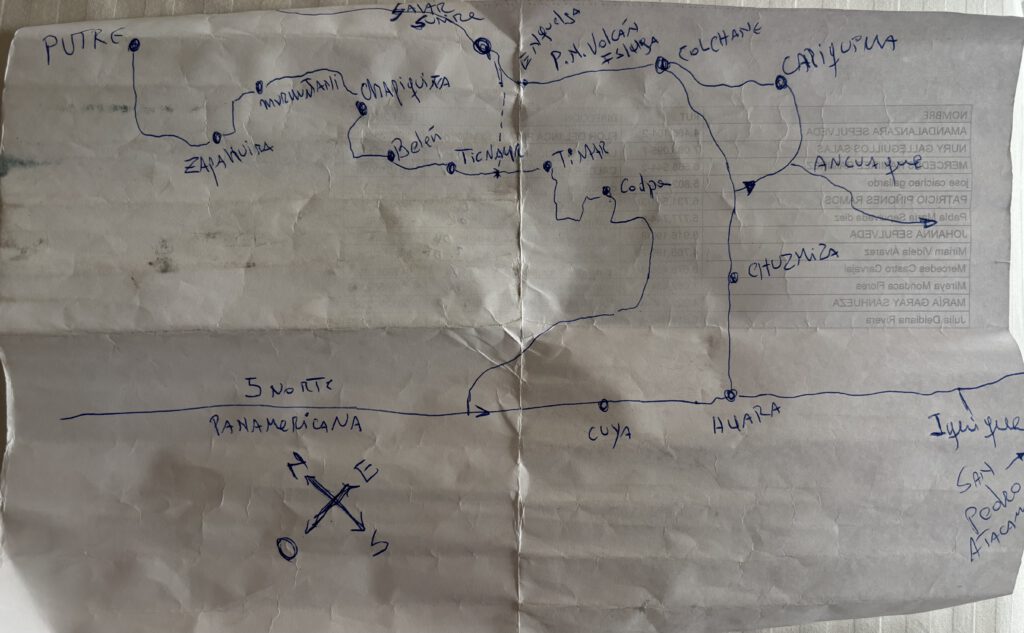 SALAR
SURIRE
PUTRE
ENQUELGA
P.N. VOLCÁN
ISLUGA
COLCHANE
CARIQUIMA
MURMUNTANI
CHAPIQUIÑA
ZAPAHUIRA
Belén
TICNAMAR
TIMAR
Codpa
ANCUAQUE
CHUZMIZA
5 NORTE
PANAMERICANA
CUYA
HUARA
Iquique
SAN
Pedro
ATACAM
N
E
O
S
NOMBRE
AMANDA LANZARA SEPULVEDA
NURY GALLEGUILLOS SALAS
MERCEDE
jose caicheo gallardo
PATRICIO PIÑONES RAMOS
Pabla Maria Sepulveda diez
JOHANNA SEPULVEDA
Miriam Videla Álvarez
Mercedes Castro Carvajal
Mireya Mondaca Flores
MARÍA GARAY SANHUEZA
Julia Deidiana Rivera